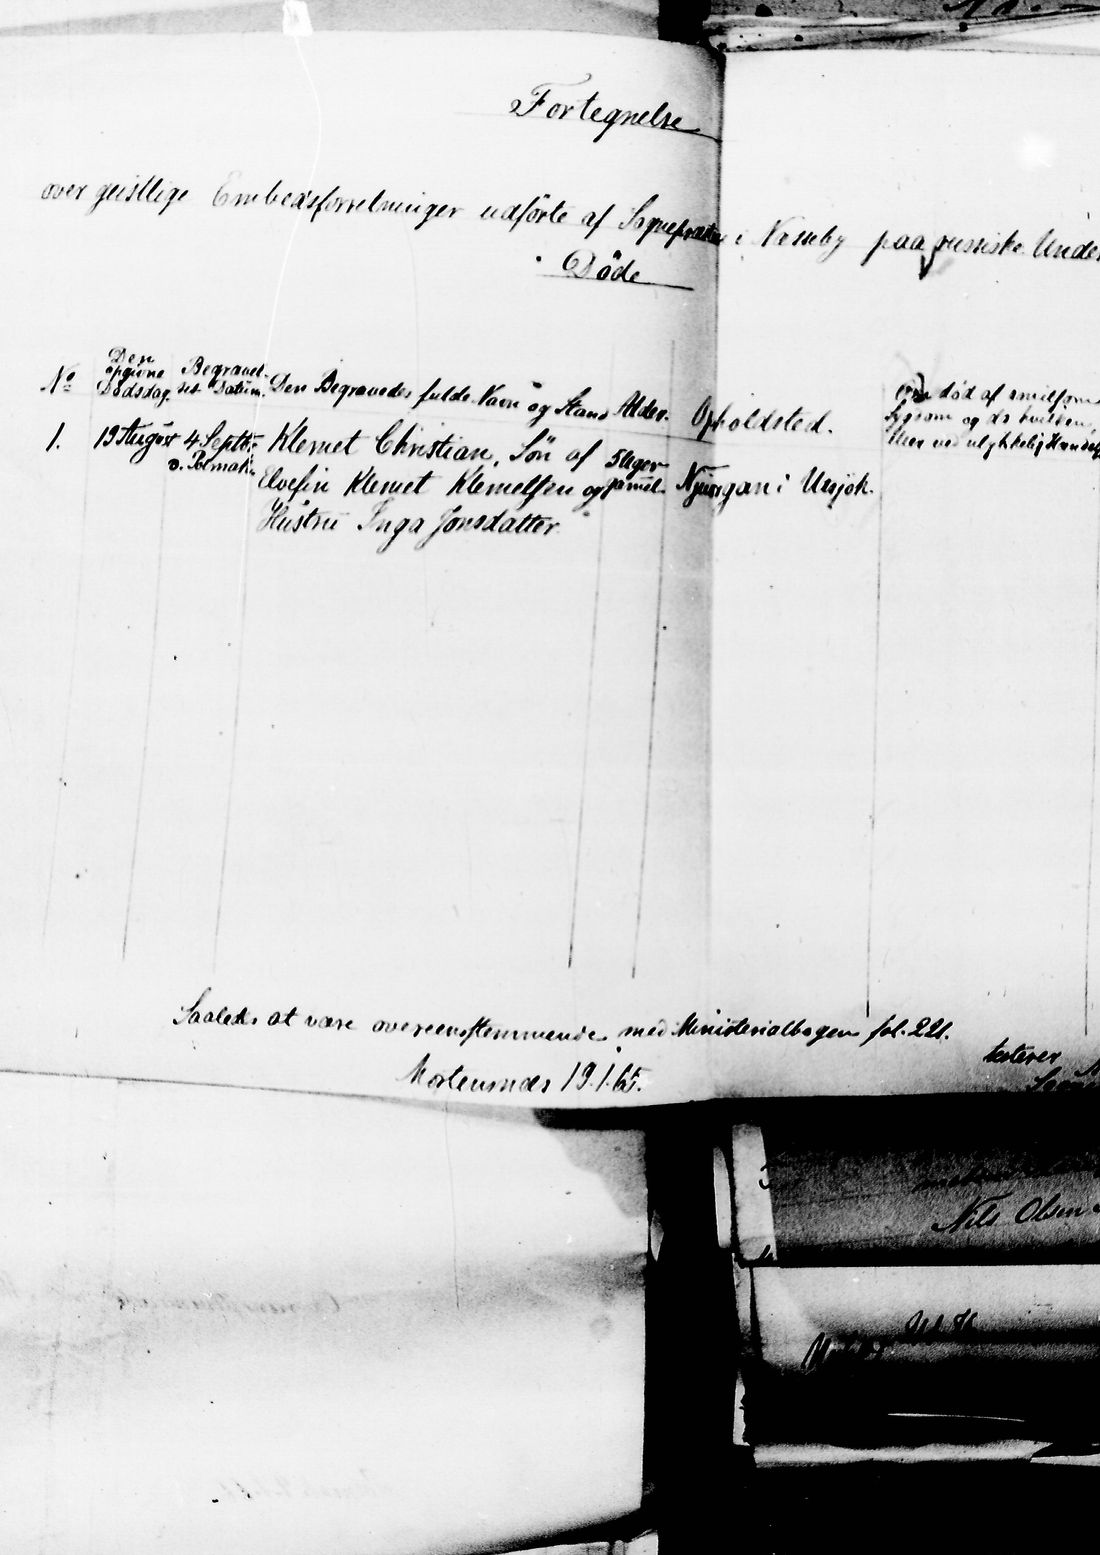 Fortegnelse
over geistlige Embedsforretninger udförte af Sognepræsten i Nesseby paa russiske Under
Döde
No Den opgivne Dödsdag. Begravelses Datum. Den Begravedes fulde Navn og Stand Alder. Opholdsted. Om död af smitsom
Sygdom og da hvilken,
eller ved ulykkelig Hændelse
1. 19 August 4 Septbr. Klemet Christian, Sön af 5 Uger
v. Polmak. Elvefin Klemet Klemetsen og gamel. Njuorgan i Utsjok.
Hustru Inga Jonsdatter
Saaledes at være overeensstemmende med Ministerialbogen fol. 221.
Mortensnæs 19.1.65.
testerer
Nils Olsen